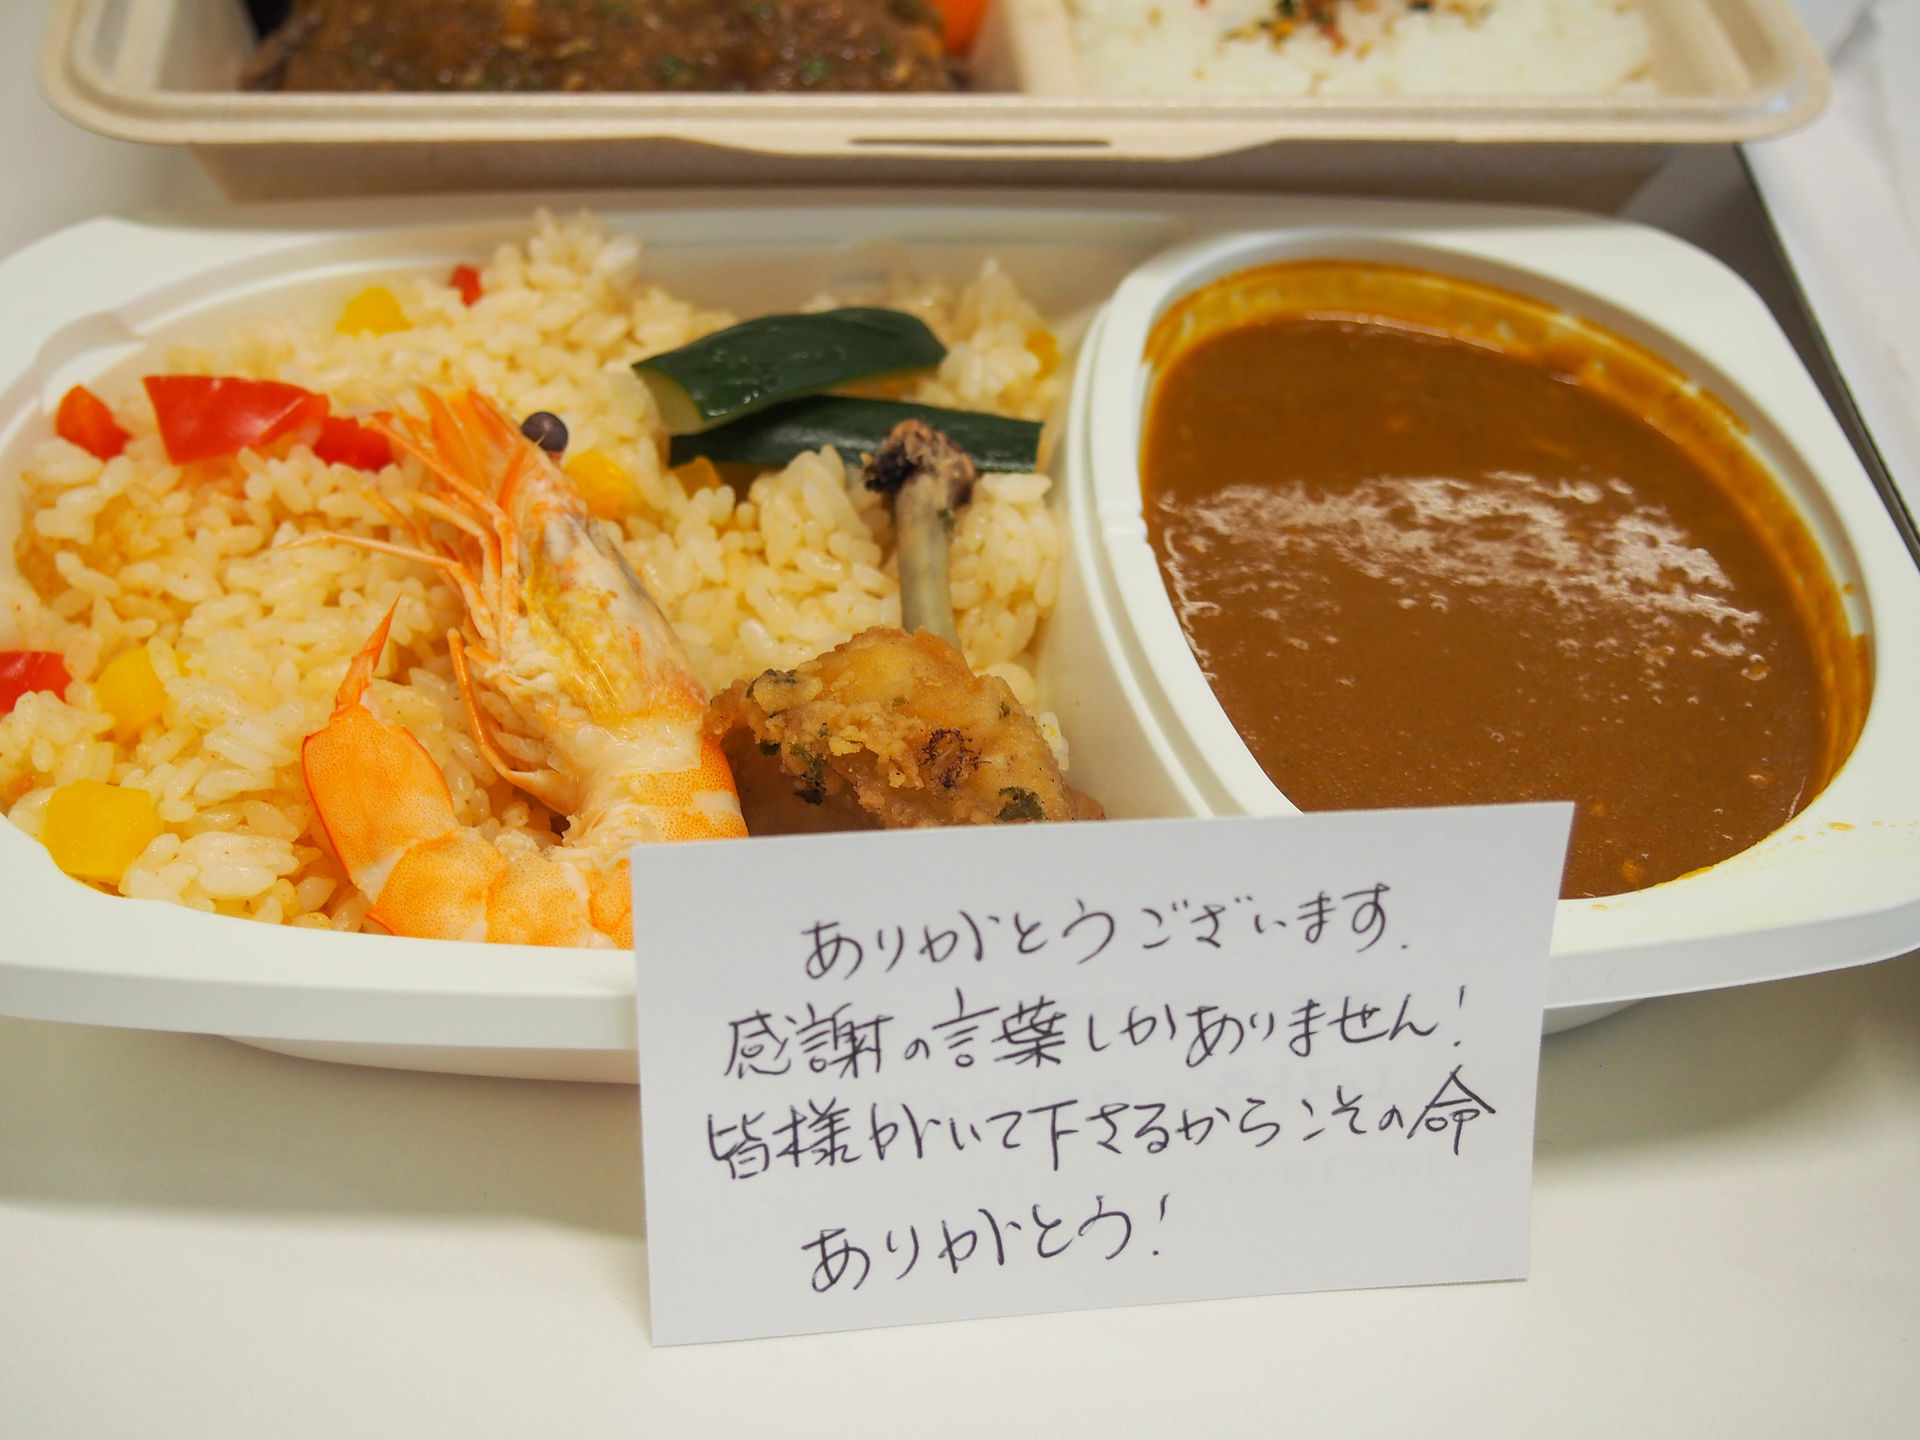 ありがとうございます.
感謝の言葉しかありません!
皆様がいて下さるからこその命
ありがとう!